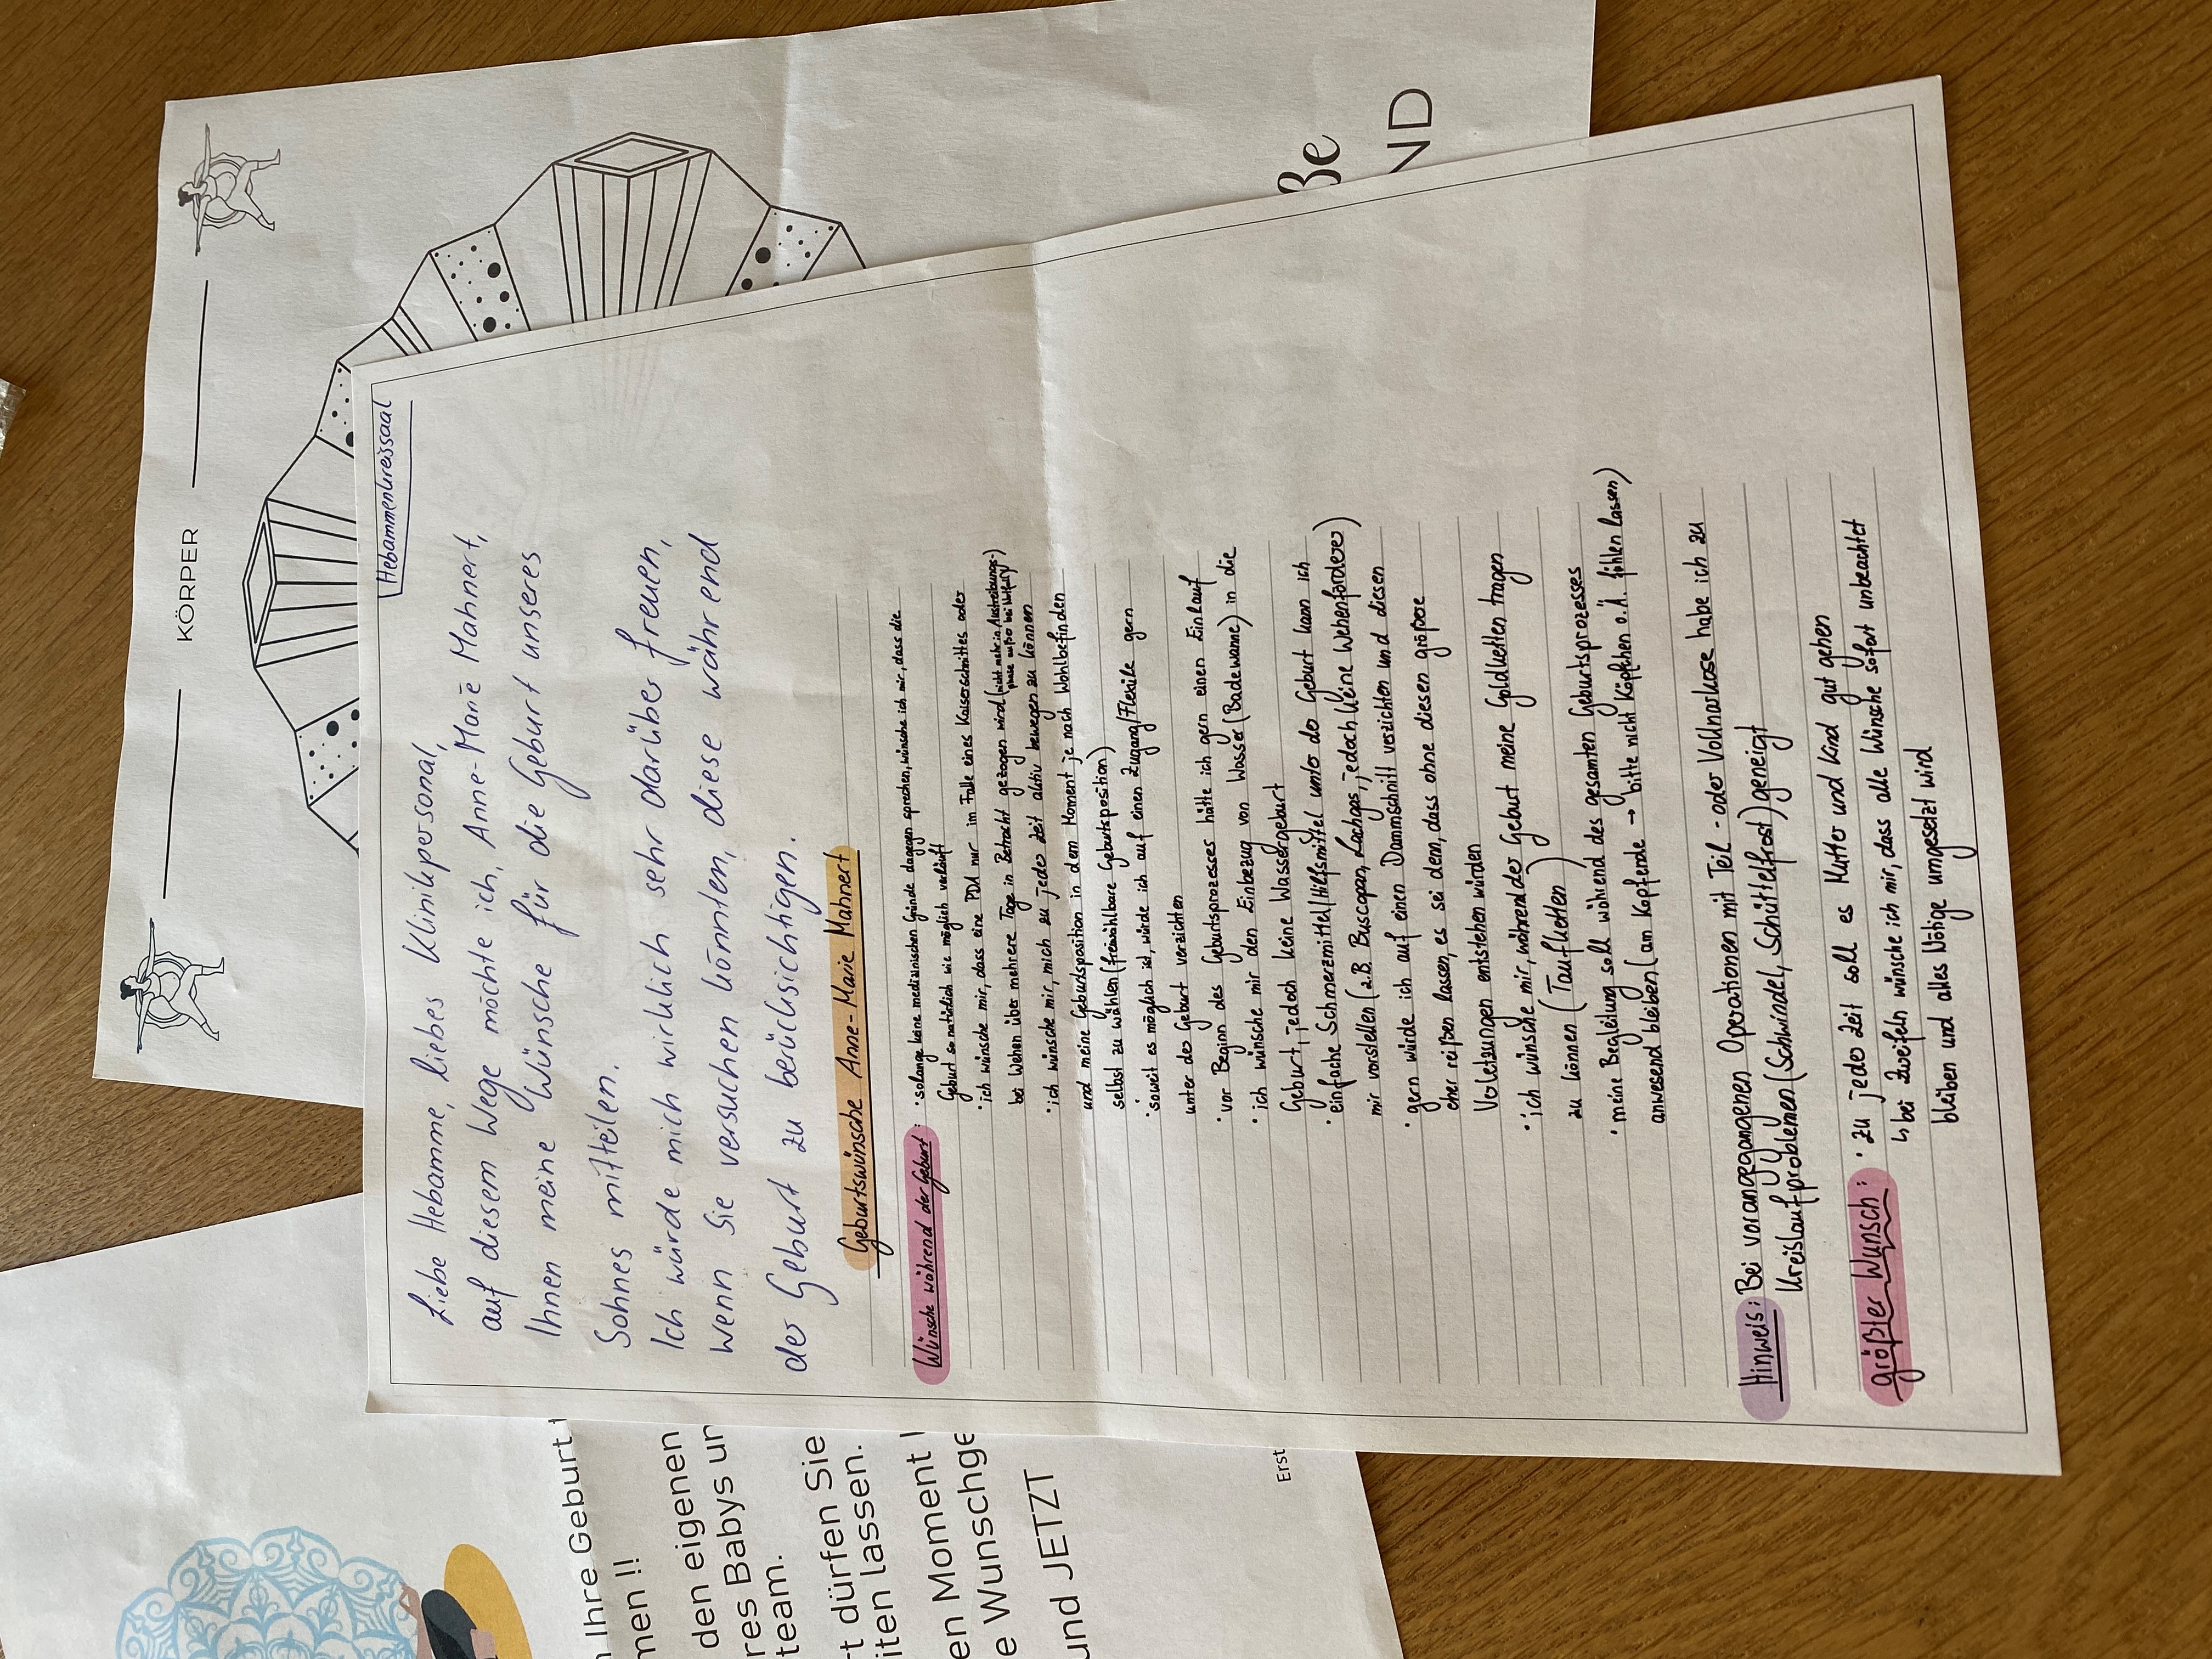 Hebammenkreissaal
Liebe Hebamme, liebes Klinikpersonal,
auf diesem Wege möchte ich, Anne-Marie Mahnert,
Ihnen meine Wünsche für die Geburt unseres
Sohnes mitteilen.
Ich würde mich wirklich sehr darüber freuen,
wenn Sie versuchen könnten, diese während
der Geburt zu berücksichtigen.
Geburtswünsche Anne-Marie Mahnert
Wünsche während der Geburt:
· solange keine medizinischen Gründe dagegen sprechen, wünsche ich mir, dass die
Geburt so natürlich wie möglich verläuft
· ich wünsche mir, dass eine PDA nur im Falle eines Kaiserschnittes oder
bei Wehen über mehrere Tage in Betracht gezogen wird (nicht mehr in Austreibungs-
phase außer bei Notfall)
· ich wünsche mir, mich zu jeder Zeit aktiv bewegen zu können
und meine Geburtsposition in dem Moment je nach Wohlbefinden
selbst zu wählen (freiwählbare Geburtsposition)
· soweit es möglich ist, würde ich auf einen Zugang/Flexüle gern
unter der Geburt verzichten
· vor Beginn des Geburtsprozesses hätte ich gern einen Einlauf
· ich wünsche mir den Einbezug von Wasser (Badewanne) in die
Geburt, jedoch keine Wassergeburt
· einfache Schmerzmittel/Hilfsmittel unter der Geburt kann ich
mir vorstellen (z.B. Buscopan, Lachgas, jedoch keine Wehenförderer)
· gern würde ich auf einen Dammschnitt verzichten und diesen
eher reißen lassen, es sei denn, dass ohne diesen größere
Verletzungen entstehen würden
· ich wünsche mir, während der Geburt meine Goldketten tragen
zu können (Taufketten)
· meine Begleitung soll während des gesamten Geburtsprozesses
anwesend bleiben (am Kopfende → bitte nicht Köpfchen o.Ä. fühlen lassen)
Hinweis: Bei vorangegangenen Operationen mit Teil- oder Vollnarkose habe ich zu
Kreislaufproblemen (Schwindel, Schüttelfrost) geneigt
größter Wunsch: · zu jeder Zeit soll es Mutter und Kind gut gehen
↳ bei Zweifeln wünsche ich mir, dass alle Wünsche sofort unbeachtet
bleiben und alles Nötige umgesetzt wird
KÖRPER
Ihre Geburt
den eigenen
Babys
team.
dürfen Sie
lassen.
Moment
und JETZT
Erst